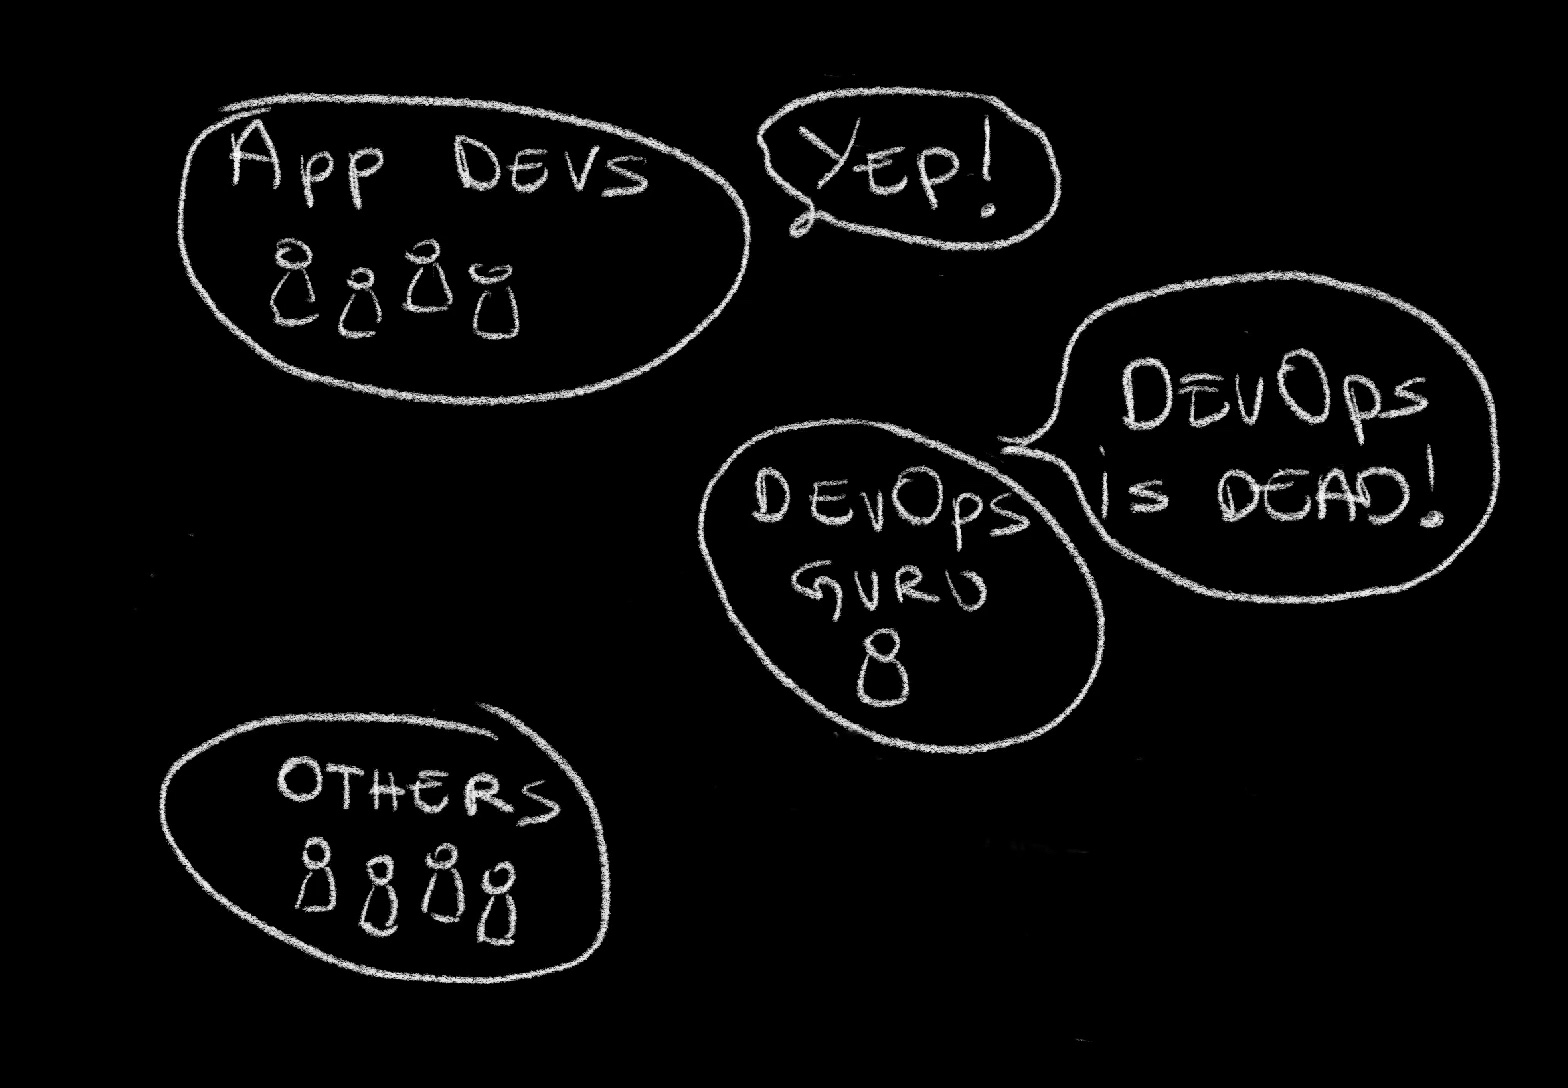 App DEVS
YEP!
DEVOps
is DEAD!
DEVOps
GURU
OTHERS